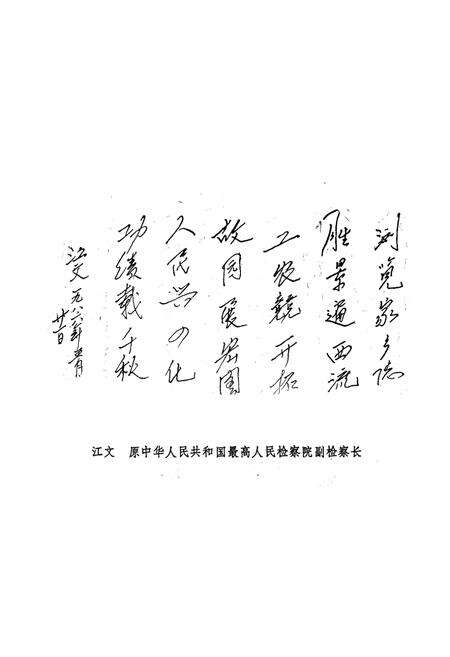 浏览家乡志
胜景遍西流
工农競开拓
故园展宏图
人民兴四化
功绩载千秋
江文 一九八六年 月
廿 日
江文 原中华人民共和国最高人民检察院副检察长